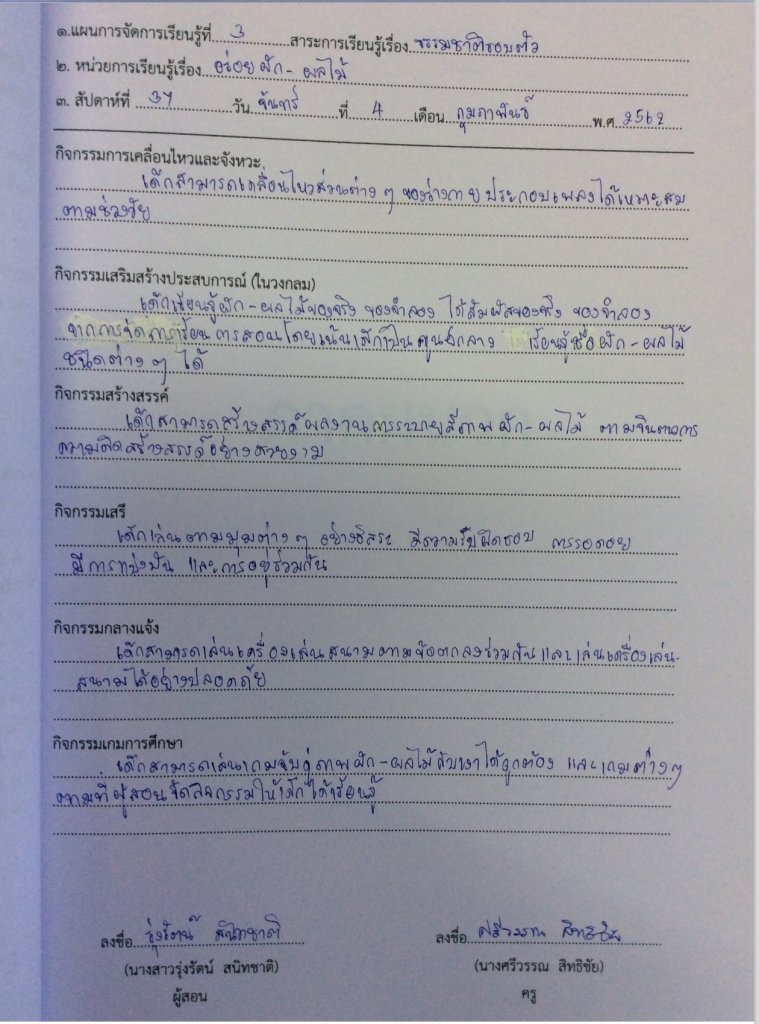 ๑.แผนการจัดการเรียนรู้ที่ 3 สาระการเรียนรู้เรื่อง ธรรมชาติรอบตัว
๒. หน่วยการเรียนรู้เรื่อง อร่อยผัก-ผลไม้
๓. สัปดาห์ที่ 37 วัน จันทร์ ที่ 4 เดือน กุมภาพันธ์ พ.ศ. 2562
กิจกรรมการเคลื่อนไหวและจังหวะ
เด็กสามารถเคลื่อนไหวส่วนต่างๆ ของร่างกายประกอบเพลงได้เหมาะสม
ตามช่วงวัย
กิจกรรมเสริมสร้างประสบการณ์ (ในวงกลม)
เด็กเรียนรู้ผัก-ผลไม้ของจริง ของจำลอง ได้สัมผัสของจริง ของจำลอง
จากการจัดการเรียนการสอนโดยเน้นเด็กเป็นศูนย์กลาง ได้เรียนรู้ชื่อผัก-ผลไม้
ชนิดต่างๆ ได้
กิจกรรมสร้างสรรค์
เด็กสามารถสร้างสรรค์ผลงานการระบายสีภาพผัก-ผลไม้ ตามจินตนาการ
ความคิดสร้างสรรค์อย่างสวยงาม
กิจกรรมเสรี
เด็กเล่นตามมุมต่างๆ อย่างอิสระ มีความรับผิดชอบ การรอคอย
มีการแบ่งปัน และการอยู่ร่วมกัน
กิจกรรมกลางแจ้ง
เด็กสามารถเล่นเครื่องเล่นสนามตามข้อตกลงร่วมกันและเล่นเครื่องเล่น
สนามได้อย่างปลอดภัย
กิจกรรมเกมการศึกษา
เด็กสามารถเล่นเกมจับคู่ภาพผัก-ผลไม้กับเงาได้ถูกต้อง และเกมต่างๆ
ตามที่ผู้สอนจัดกิจกรรมให้เด็กได้เรียนรู้
ลงชื่อ รุ่งรัตน์ สนิทชาติ ลงชื่อ ศรีวรรณ สิทธิชัย
(นางสาวรุ่งรัตน์ สนิทชาติ) (นางศรีวรรณ สิทธิชัย)
ผู้สอน ครู